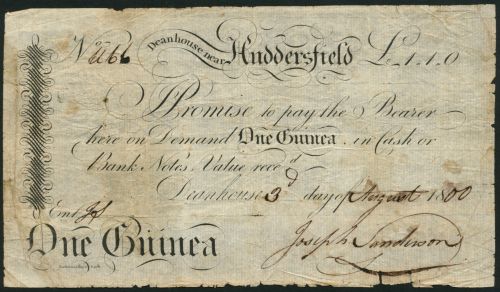 No. Deanhouse near Huddersfield £1.1.0
Promise to pay the Bearer
here on Demand One Guinea in Cash or
Bank Notes Value recd
Deanhouse 3 day of August 1800
Ent
Joseph Sanderson
One Guinea